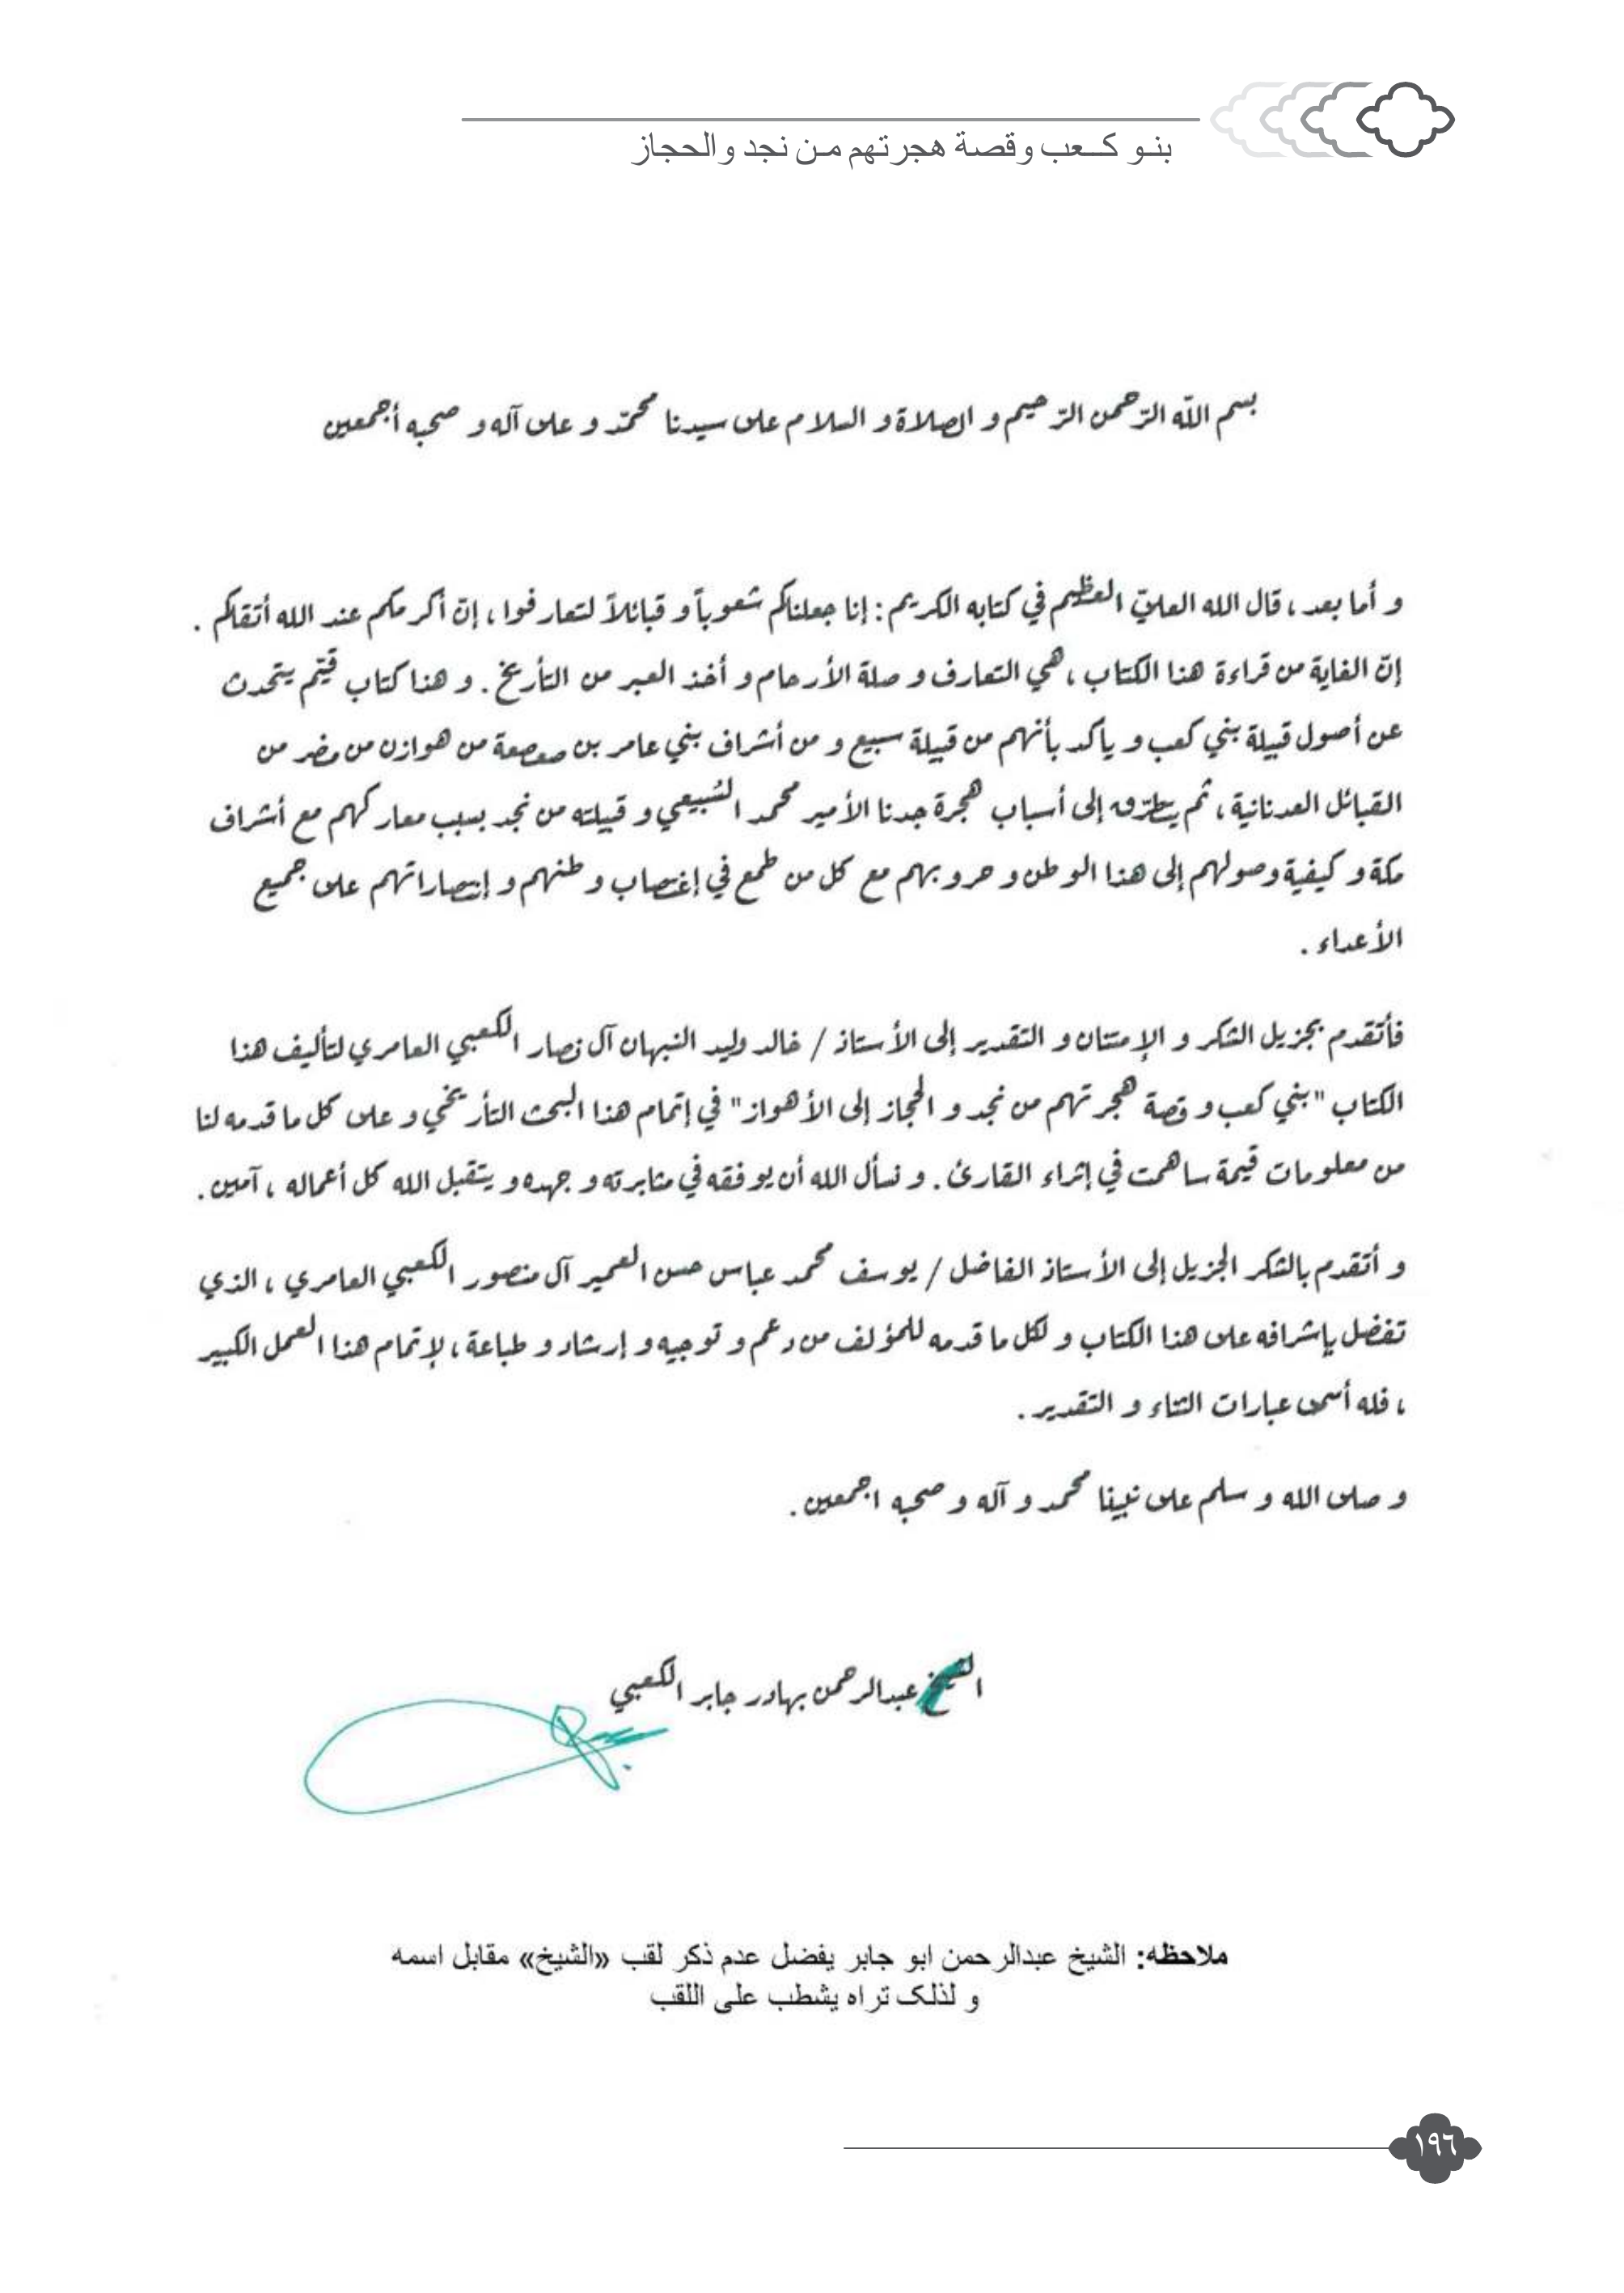 بنو كعب وقصة هجرتهم من نجد والحجاز
بسم اللّه الرّحمن الرّحيم و الصلاة و السلام على سيدنا محمّد و على آله و صحبه أجمعين
و أما بعد ، قال الله العليّ العظيم في كتابه الكريم : إنا جعلناكم شعوباً و قبائلاً لتعارفوا ، إنّ أكرمكم عند الله أتقاكم .
إنّ الغاية من قراءة هذا الكتاب ، هي التعارف و صلة الأرحام و أخذ العبر من التأريخ . و هذا كتاب قيّم يتحدث
عن أصول قبيلة بني كعب و يأكد بأنهم من قبيلة سبيع و من أشراف بني عامر بن صعصعة من هوازن من مضر من
القبائل العدنانية ، ثم يتطرّق إلى أسباب هجرة جدنا الأمير محمد السُبيعي و قبيلته من نجد بسبب معاركهم مع أشراف
مكة و كيفية وصولهم إلى هذا الوطن و حروبهم مع كل من طمع في إغتصاب وطنهم و إنتصاراتهم على جميع
الأعداء .
فأتقدم بجزيل الشكر و الإمتنان و التقدير إلى الأستاذ / خالد وليد النبهان آل نصار الكعبي العامري لتأليف هذا
الكتاب "بني كعب و قصة هجرتهم من نجد و الحجاز إلى الأهواز" في إتمام هذا البحث التأريخي و على كل ما قدمه لنا
من معلومات قيمة ساهمت في إثراء القارئ . و نسأل الله أن يوفقه في مثابرته و جهده و يتقبل الله كل أعماله ، آمين .
و أتقدم بالشكر الجزيل إلى الأستاذ الفاضل / يوسف محمد عباس حسن العمير آل منصور الكعبي العامري ، الذي
تفضل بإشرافه على هذا الكتاب و لكل ما قدمه للمؤلف من دعم و توجيه و إرشاد و طباعة ، لإتمام هذا العمل الكبير
، فله أسمى عبارات الثناء و التقدير .
و صلى الله و سلم على نبينا محمد و آله و صحبه اجمعين .
الشيخ عبدالرحمن بهادر جابر الكعبي
ملاحظه: الشيخ عبدالرحمن ابو جابر يفضل عدم ذكر لقب «الشيخ» مقابل اسمه
و لذلک تراه يشطب على اللقب
١٩٦